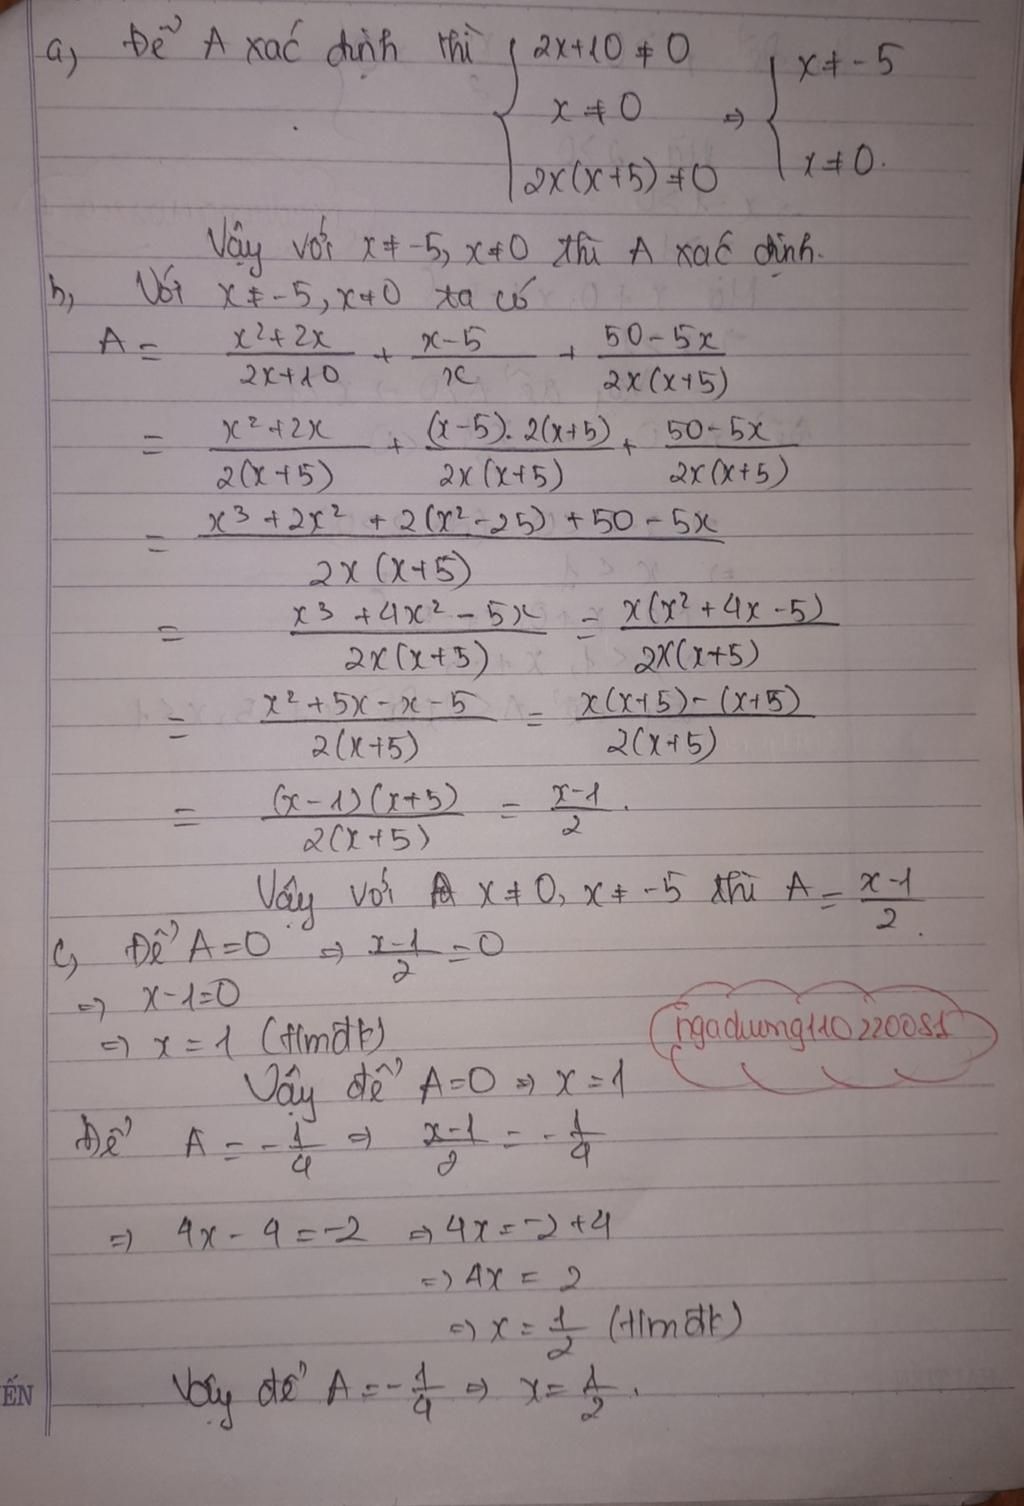 a, Để A xác định thì { 2x+10 ≠ 0
x ≠ 0
2x(x+5) ≠ 0 ⇒ { x ≠ -5
x ≠ 0.
Vậy với x ≠ -5, x ≠ 0 thì A xác định.
b, Với x ≠ -5, x ≠ 0 ta có
A = (x²+2x)/(2x+10) + (x-5)/x + (50-5x)/(2x(x+5))
= (x²+2x)/(2(x+5)) + ((x-5).2(x+5))/(2x(x+5)) + (50-5x)/(2x(x+5))
= (x³+2x²+2(x²-25)+50-5x)/(2x(x+5))
= (x³+4x²-5x)/(2x(x+5)) = (x(x²+4x-5))/(2x(x+5))
= (x²+5x-x-5)/(2(x+5)) = (x(x+5)-(x+5))/(2(x+5))
= ((x-1)(x+5))/(2(x+5)) = (x-1)/2.
Vậy với x ≠ 0, x ≠ -5 thì A = (x-1)/2.
c, Để A=0 ⇒ (x-1)/2 = 0
⇒ x-1=0
⇒ x = 1 (t/mđk)
ngadung11022008
Vậy để A=0 ⇒ x=1
Để A = -1/4 ⇒ (x-1)/2 = -1/4
⇒ 4x-4=-2 ⇒ 4x=-2+4
⇒ 4x = 2
⇒ x = 1/2 (t/mđk)
Vậy để A = -1/4 ⇒ x = 1/2.
ẾN